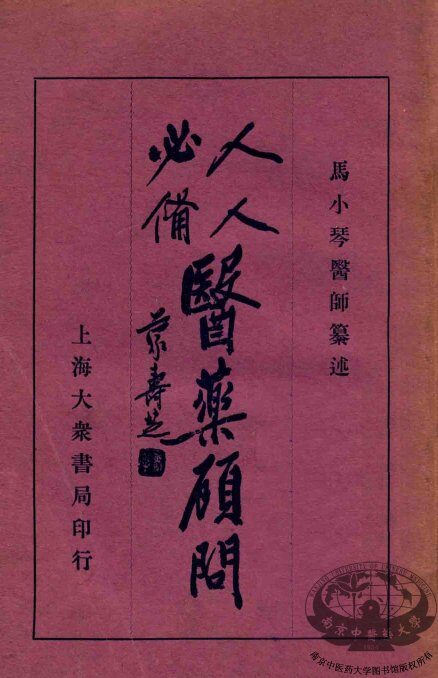 馬小琴醫師纂述
人人
必備
醫藥顧問
上海大衆書局印行
南京中醫药大学
NANJING UNIVERSITY OF CHINESE MEDICINE
1954
南京中医药大学图书馆版权所有